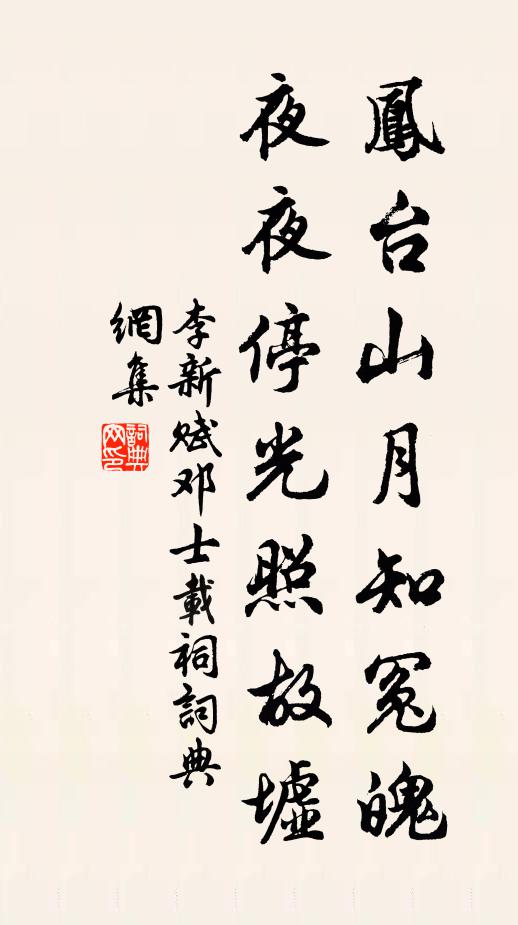 鳳台山月知冤魄
夜夜停光照故墟
李新赋邓士載祠詞典
網集
詞典
网印